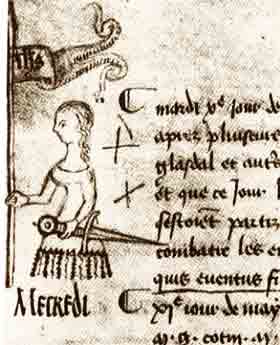 IHS
mardi xe jour de
apres pluiseurs
glasdal et autres
et que ce jour
sestoiet partiz
combatre les
quis eventus
Mecredi
xie jour de may